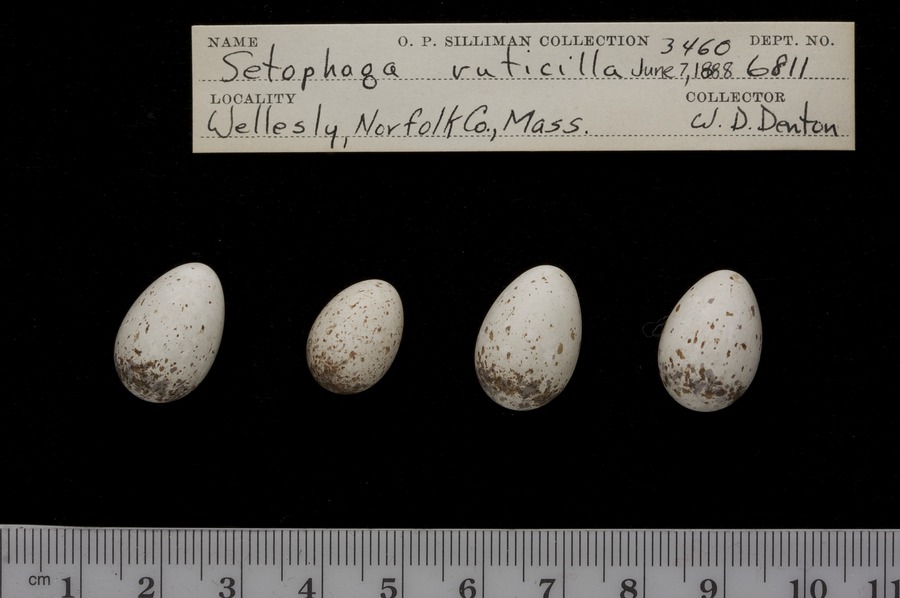 NAME O. P. SILLIMAN COLLECTION 3460 DEPT. NO.
Setophaga ruticilla June 7, 1888 6811
LOCALITY COLLECTOR
Wellesly, Norfolk Co., Mass. W. D. Denton
cm 1 2 3 4 5 6 7 8 9 10 11